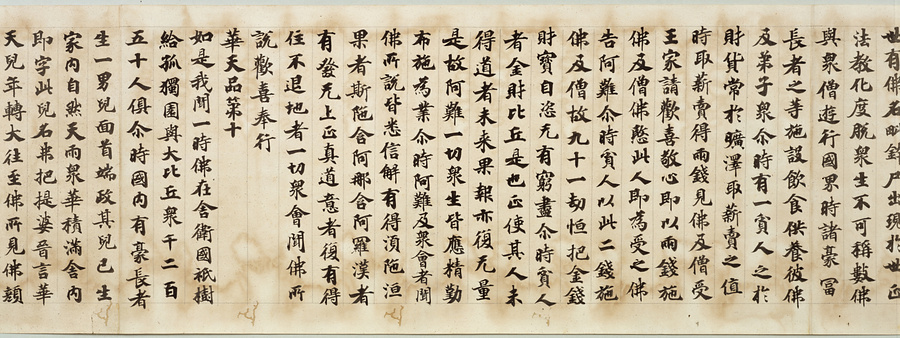 世有佛名毗鉢尸出現於世正
法教化度脫衆生不可稱數佛
與衆僧遊行國界時諸豪冨
長者之等施設飲食供養彼佛
及弟子衆尒時有一貧人之於
財貨常於曠澤取薪賣之值
時取薪賣得兩錢見佛及僧受
王家請歡喜敬心即以兩錢施
佛及僧佛愍此人即為受之佛
告阿難尒時貧人以此二錢施
佛及僧故九十一劫恒把金錢
財寶自恣无有窮盡尒時貧人
者金財比丘是也正使其人未
得道者未来果報亦復无量
是故阿難一切衆生皆應精勤
布施為業尒時阿難及衆會者聞
佛所說皆悉信解有得湏陁洹
果者斯陁含阿那含阿羅漢者
有發无上正真道意者復有得
住不退地者一切衆會聞佛所
說歡喜奉行
華天品第十
如是我聞一時佛在舍衛國祇樹
給孤獨園與大比丘衆千二百
五十人俱尒時國内有豪長者
生一男兒面首端政其兒已生
家内自然天雨衆華積滿舍内
即字此兒名弗把提婆晉言華
天兒年轉大往至佛所見佛顏